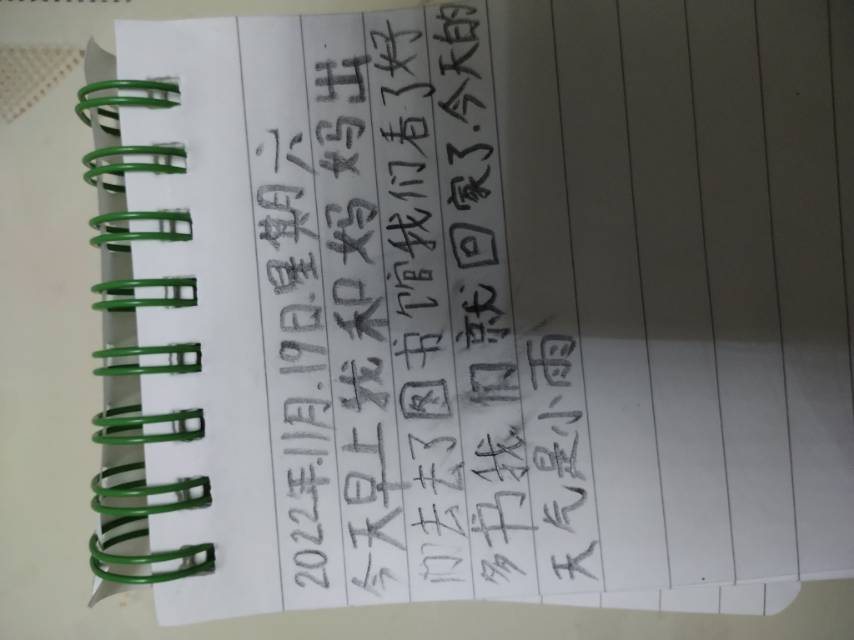 2022年.11月.19日.星期六
今天早上我和妈妈出
门去去了图书馆我们看了好
多书我们就回家了.今天的
天气是小雨